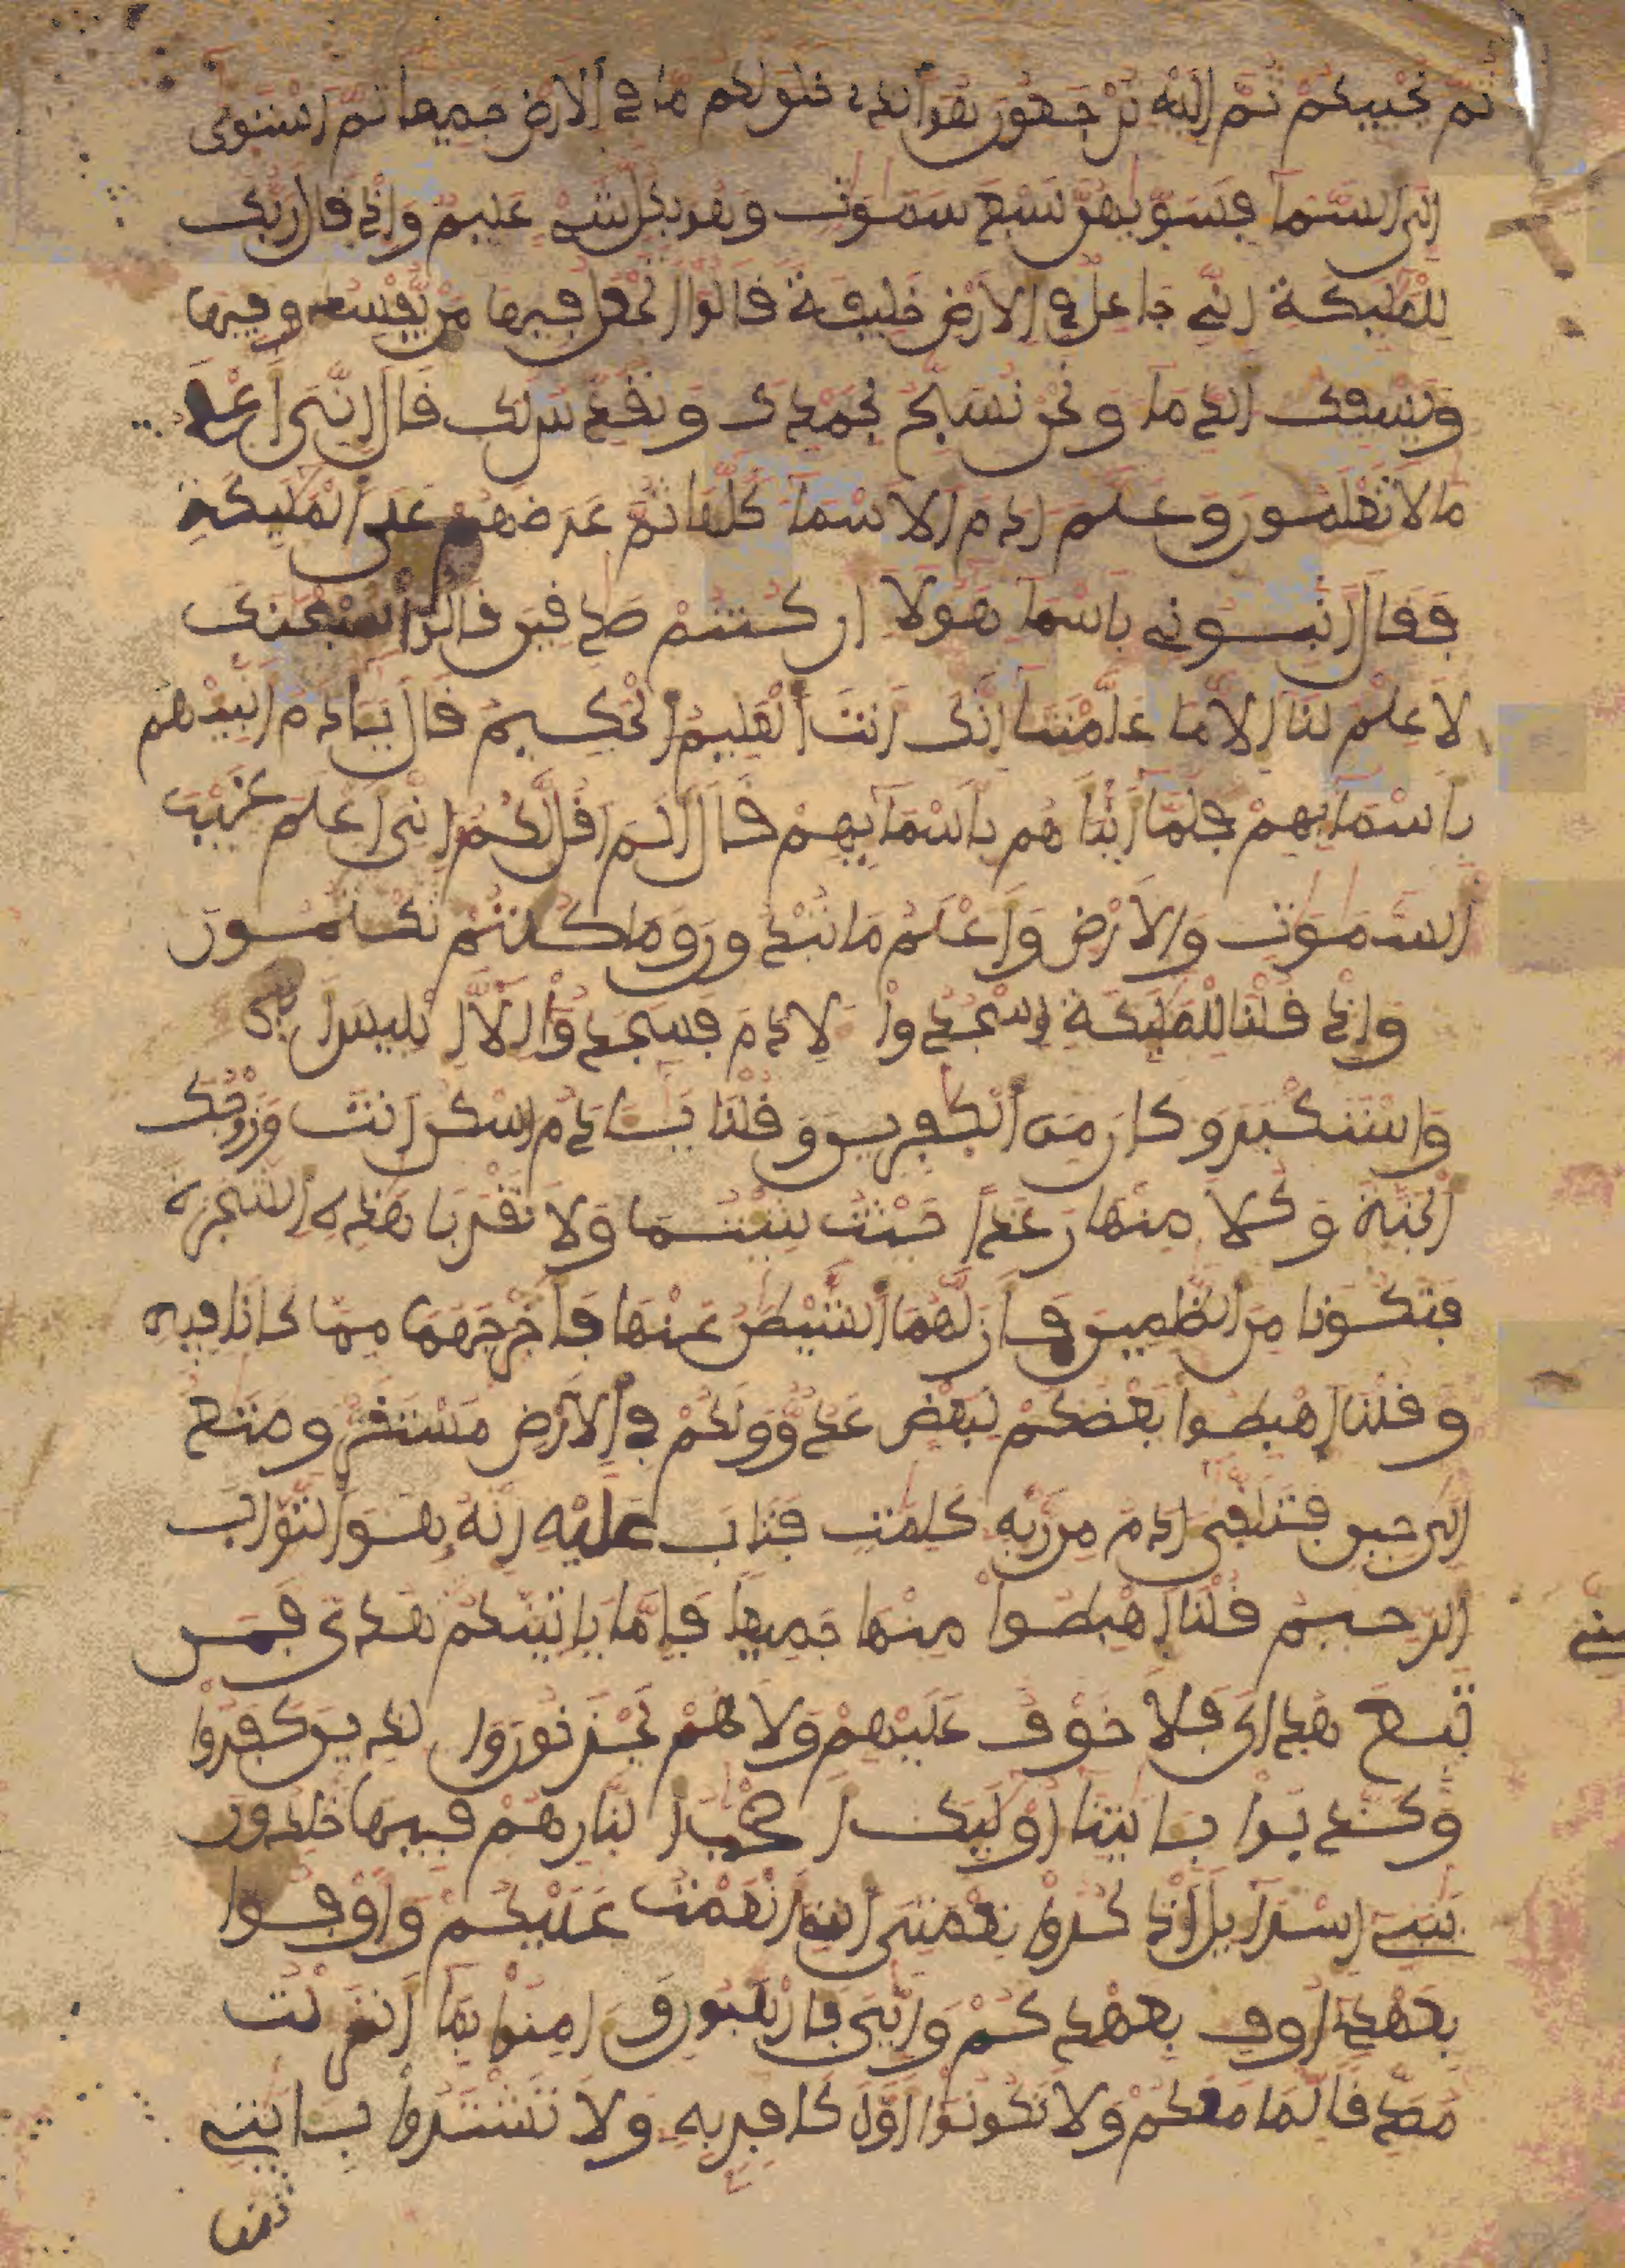 ثم يحييكم ثم إليه ترجعون هو الذي خلق لكم ما في الارض جميعا ثم استوى
إلى السما فسويهن سبع سموت وهو بكل شي عليم وإذ قال ربك
للمليكة إني جاعل في الارض خليفة قالوا اتجعل فيها من يفسد فيها
ويسفك الدما ونحن نسبح بحمدك ونقدس لك قال إني أعلم
ما لا تعلمون وعلم ادم الاسما كلها ثم عرضهم على المليكة
فقال انبوني باسما هولا ان كنتم صدقين قالوا سبحنك
لا علم لنا إلا ما علمتنا إنك انت العليم الحكيم قال يادم انبيهم
باسمايهم فلما انباهم باسمايهم قال الم اقل لكم اني اعلم غيب
السموت والارض واعلم ما تبدون وما كنتم تكتمون
وإذ قلنا للمليكة اسجدوا لادم فسجدوا إلا إبليس ابى
واستكبر وكان من الكفرين وقلنا يادم اسكن انت وزوجك
الجنة وكلا منها رغدا حيث شيتما ولا تقربا هذه الشجرة
فتكونا من الظلمين فازلهما الشيطن عنها فاخرجهما مما كانا فيه
وقلنا اهبطوا بعضكم لبعض عدو ولكم في الارض مستقر ومتع
الى حين فتلقى ادم من ربه كلمت فتاب عليه إنه هو التواب
الرحيم قلنا اهبطوا منها جميعا فإما ياتينكم مني هدى فمن
تبع هداي فلا خوف عليهم ولا هم يحزنون والذين كفروا
وكذبوا بايتنا اوليك اصحب النار هم فيها خلدون
يبني إسرايل اذكروا نعمتي التي انعمت عليكم واوفوا
بعهدي اوف بعهدكم وإيي فارهبون وامنوا بما انزلت
مصدقا لما معكم ولا تكونوا اول كافر به ولا تشتروا بايتي
ثمنا